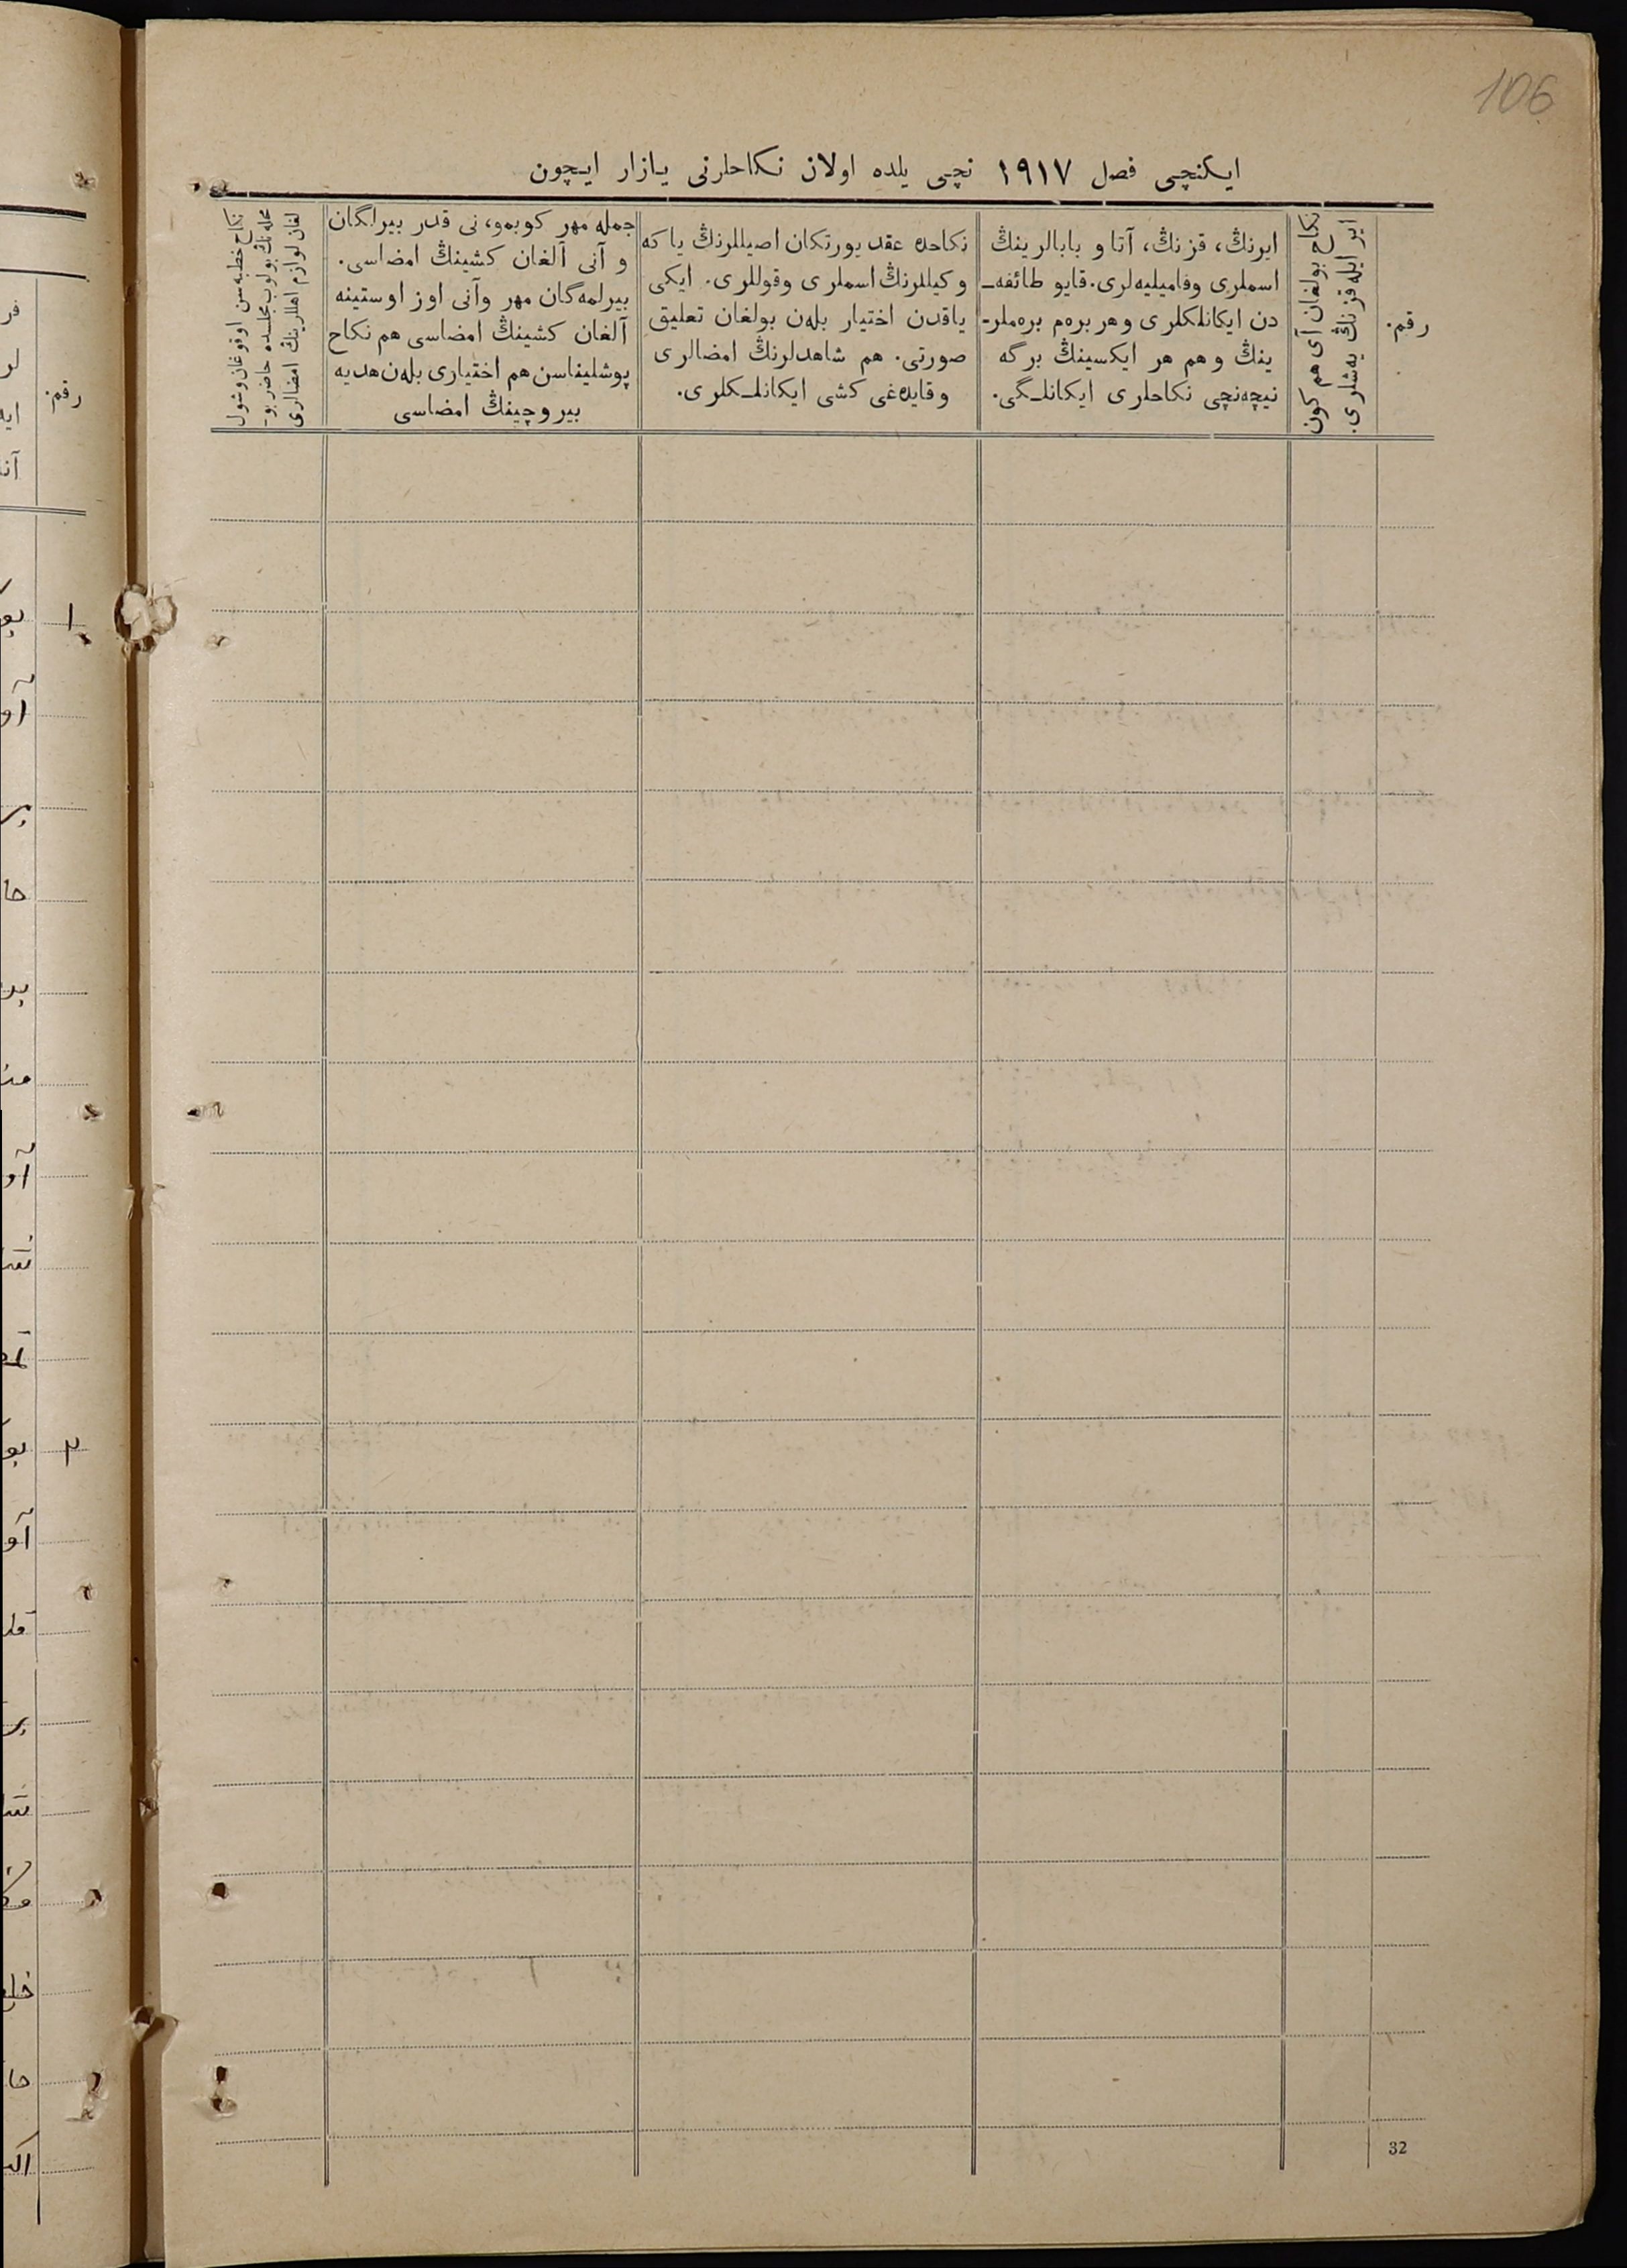 106
ایکنچی فصل ١٩١٧ نچی یلده اولان نکاحلرنی یازار ایچون
رقم.
ایر ایله قزنڭ یه‌شلری.
نکاح بولغان آی هم کون
ایرنڭ، قزنڭ، آتا و بابالرینڭ
اسملری وفامیلیه‌لری. قایو طائفه‌ـ
دن ایکانلکلری و هر بره‌م بره‌ملرـ
ینڭ و هم هر ایکسینڭ برگه
نیچه‌نچی نکاحلری ایکانلـگی.
نکاحده عقد یورتکان اصیللرنڭ یا که
وکیللرنڭ اسملری وقوللری. ایکی
یاقدن اختیار بله‌ن بولغان تعلیق
صورتی. هم شاهدلرنڭ امضالری
وقایده‌غی کشی ایکانلـکلری.
جمله مهر کوبمو، نی قدر بیرلگان
و آنی آلغان کشینڭ امضاسی.
بیرلمه‌گان مهر وآنی اوز اوستینه
آلغان کشینڭ امضاسی هم نکاح
پوشلیناسن هم اختیاری بله‌ن هدیه
بیروچینڭ امضاسی
نکاح خطبه‌سن اوقوغان وشول
محله‌نڭ بولوب مجلسده حاضر بوـ
لغان لوازم اهللرینڭ امضالری
رقم.
١
٢
32